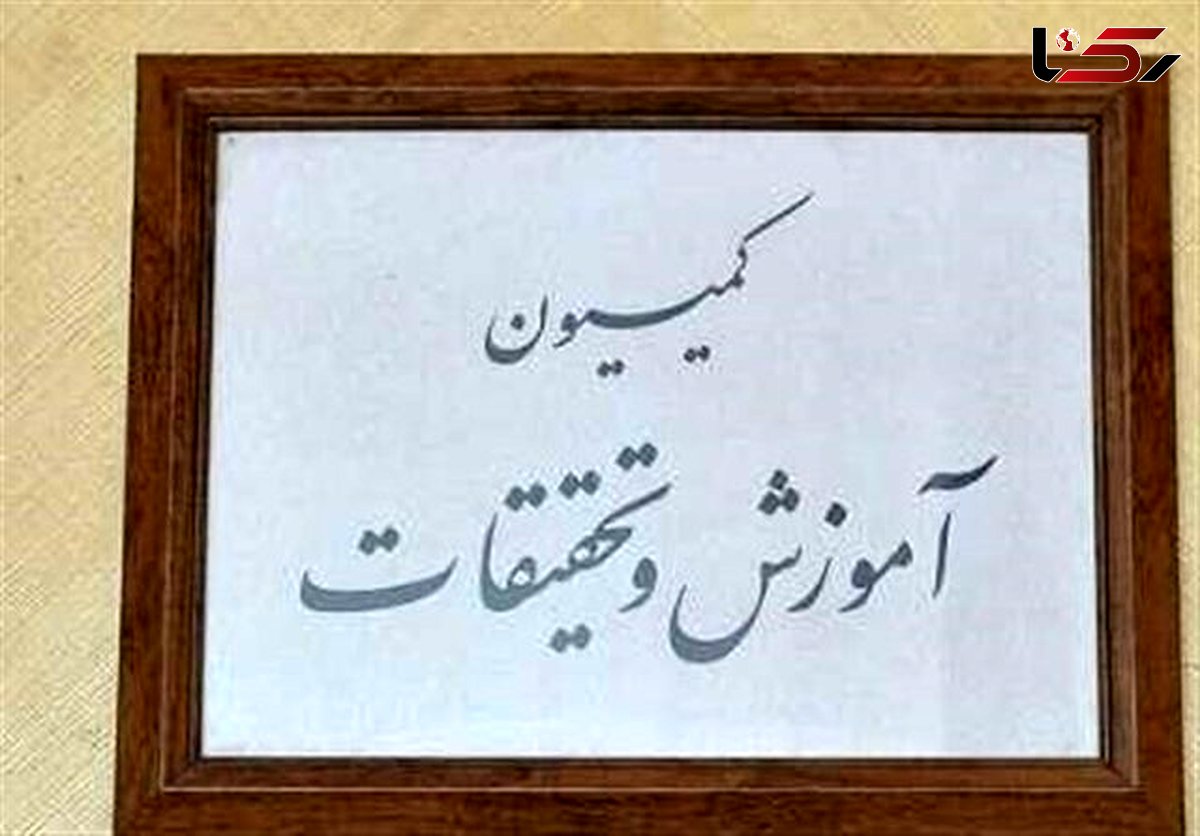 رکنا
کمیسیون
آموزش و تحقیقات